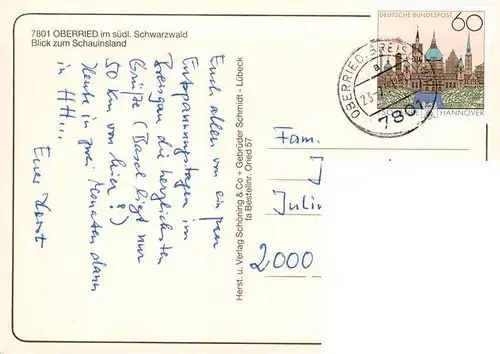 7801 OBERRIED im südl. Schwarzwald
Blick zum Schauinsland
Euch allen von ein paar
Entspannungstagen im
Breisgau die herzlichsten
Grüße (Basel liegt nur
50 km von hier!)
Heute in zwei Monaten dann
in HH...
Euer Horst
Herst. u. Verlag Schöning & Co + Gebrüder Schmidt - Lübeck
fa Bestellnr. Oried 57
DEUTSCHE BUNDESPOST 60
HANNOVER
OBERRIED, BREISG
a
23.
7801
Fam.
J
2000